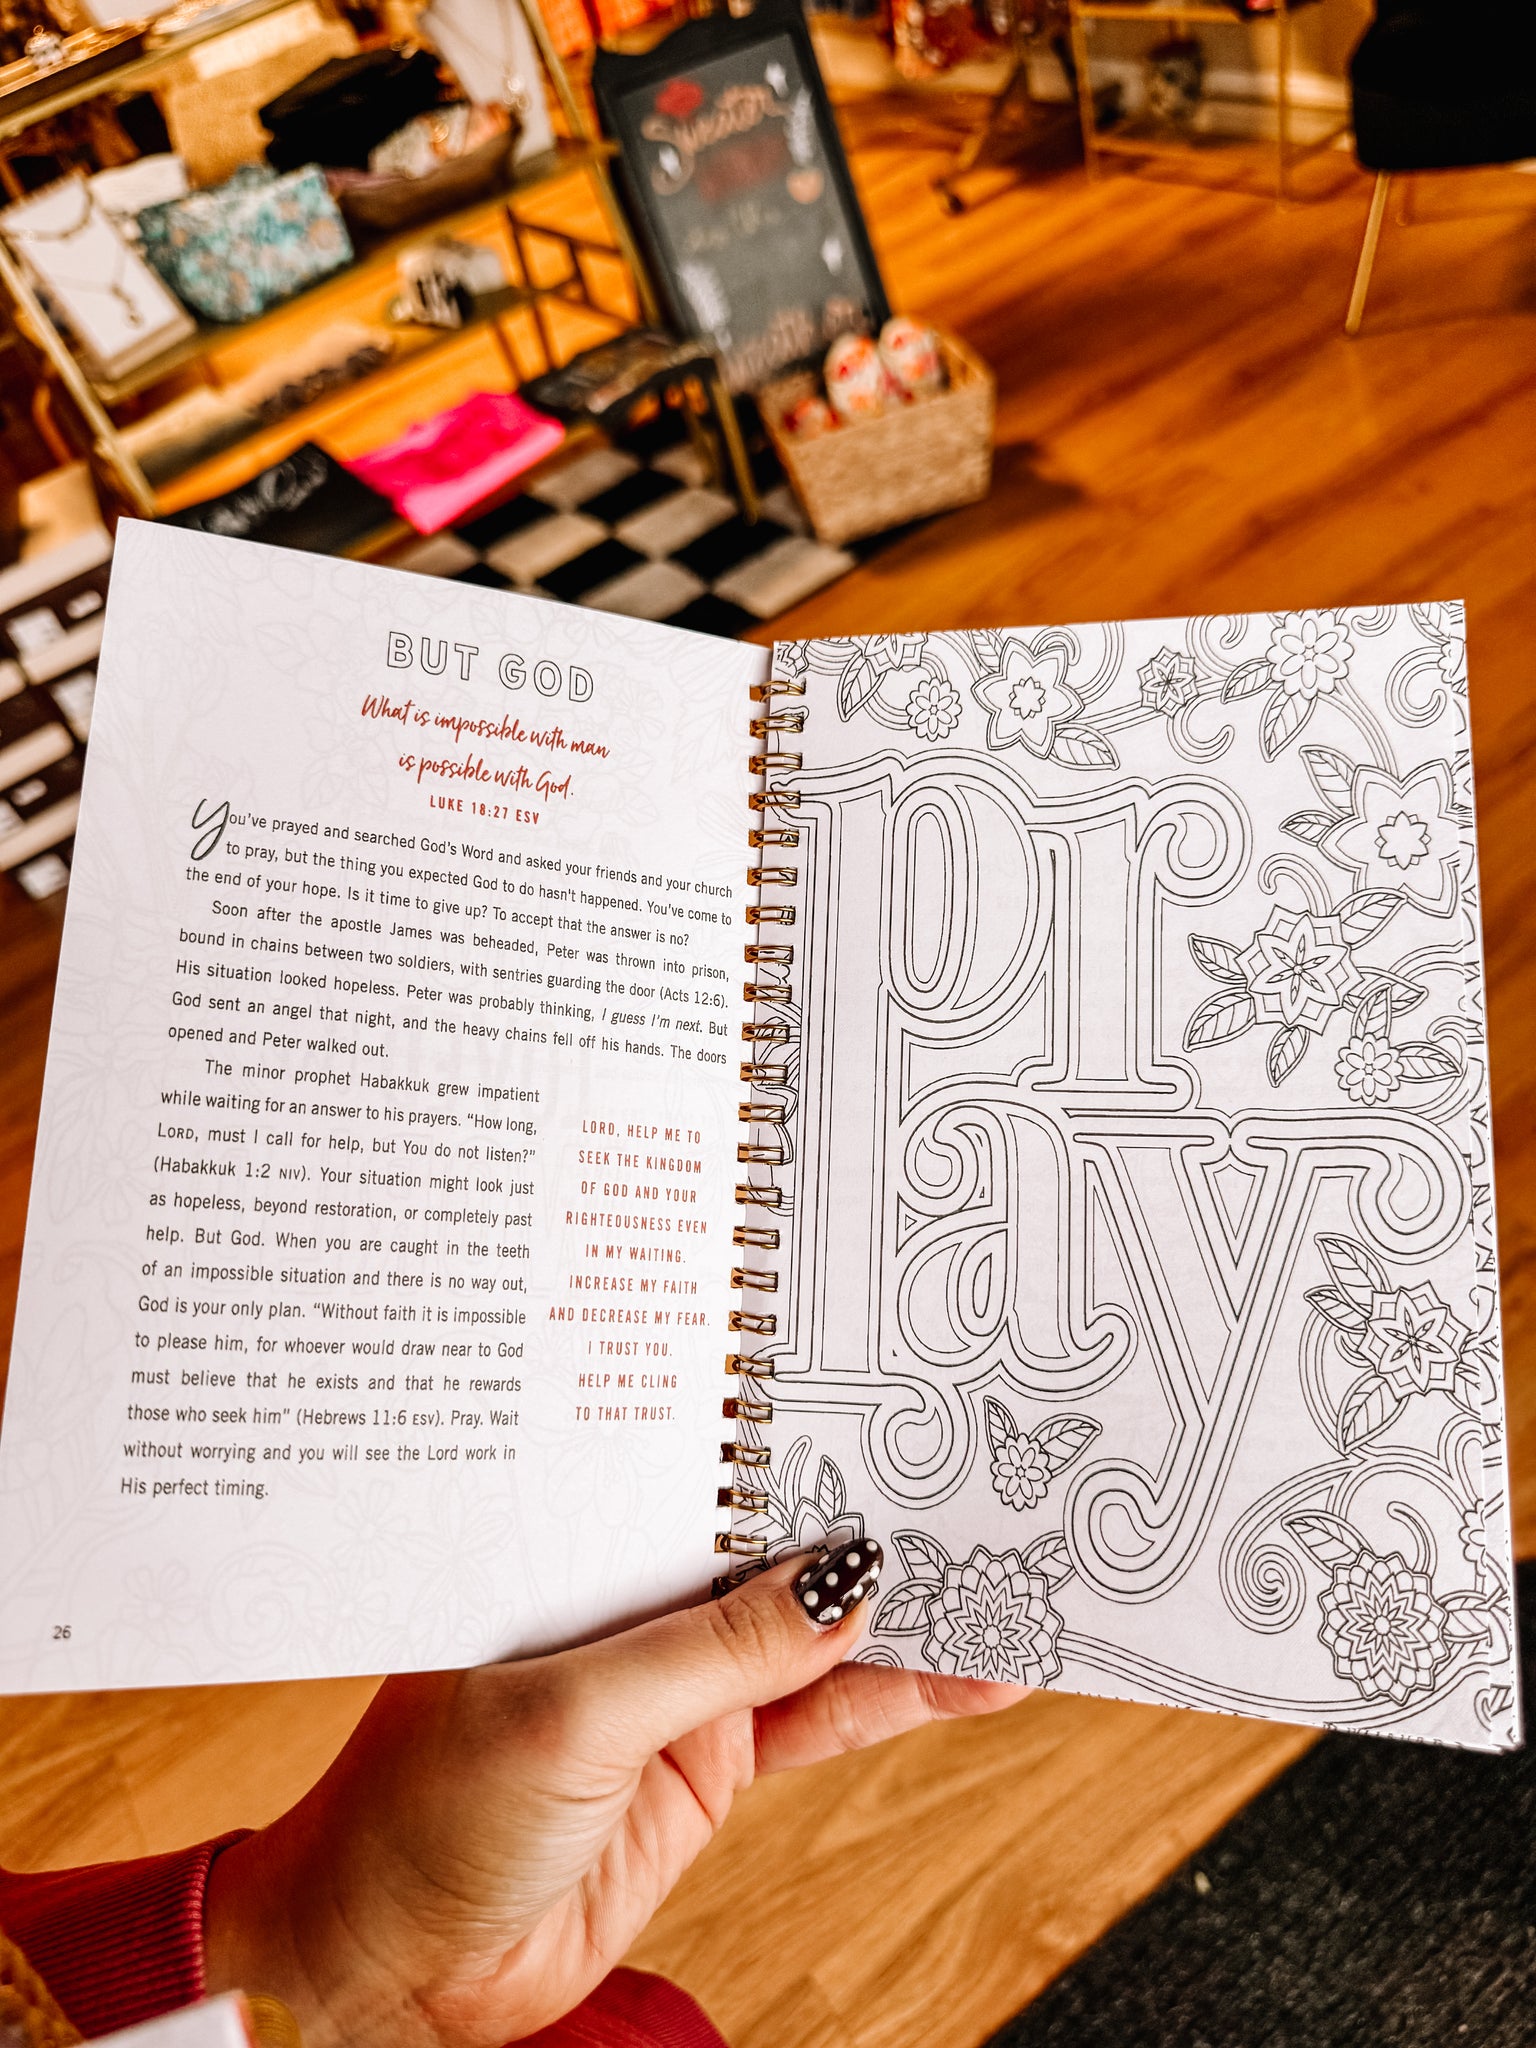 Sweater
BUT GOD
What is impossible with man
is possible with God.
LUKE 18:27 ESV
You've prayed and searched God's Word and asked your friends and your church
to pray, but the thing you expected God to do hasn't happened. You've come to
the end of your hope. Is it time to give up? To accept that the answer is no?
Soon after the apostle James was beheaded, Peter was thrown into prison,
bound in chains between two soldiers, with sentries guarding the door (Acts 12:6).
His situation looked hopeless. Peter was probably thinking, I guess I'm next. But
God sent an angel that night, and the heavy chains fell off his hands. The doors
opened and Peter walked out.
The minor prophet Habakkuk grew impatient
while waiting for an answer to his prayers. “How long,
LORD, must I call for help, but You do not listen?”
(Habakkuk 1:2 NIV). Your situation might look just
as hopeless, beyond restoration, or completely past
help. But God. When you are caught in the teeth
of an impossible situation and there is no way out,
God is your only plan. “Without faith it is impossible
to please him, for whoever would draw near to God
must believe that he exists and that he rewards
those who seek him” (Hebrews 11:6 ESV). Pray. Wait
without worrying and you will see the Lord work in
His perfect timing.
LORD, HELP ME TO
SEEK THE KINGDOM
OF GOD AND YOUR
RIGHTEOUSNESS EVEN
IN MY WAITING.
INCREASE MY FAITH
AND DECREASE MY FEAR.
I TRUST YOU.
HELP ME CLING
TO THAT TRUST.
26
pr
ay